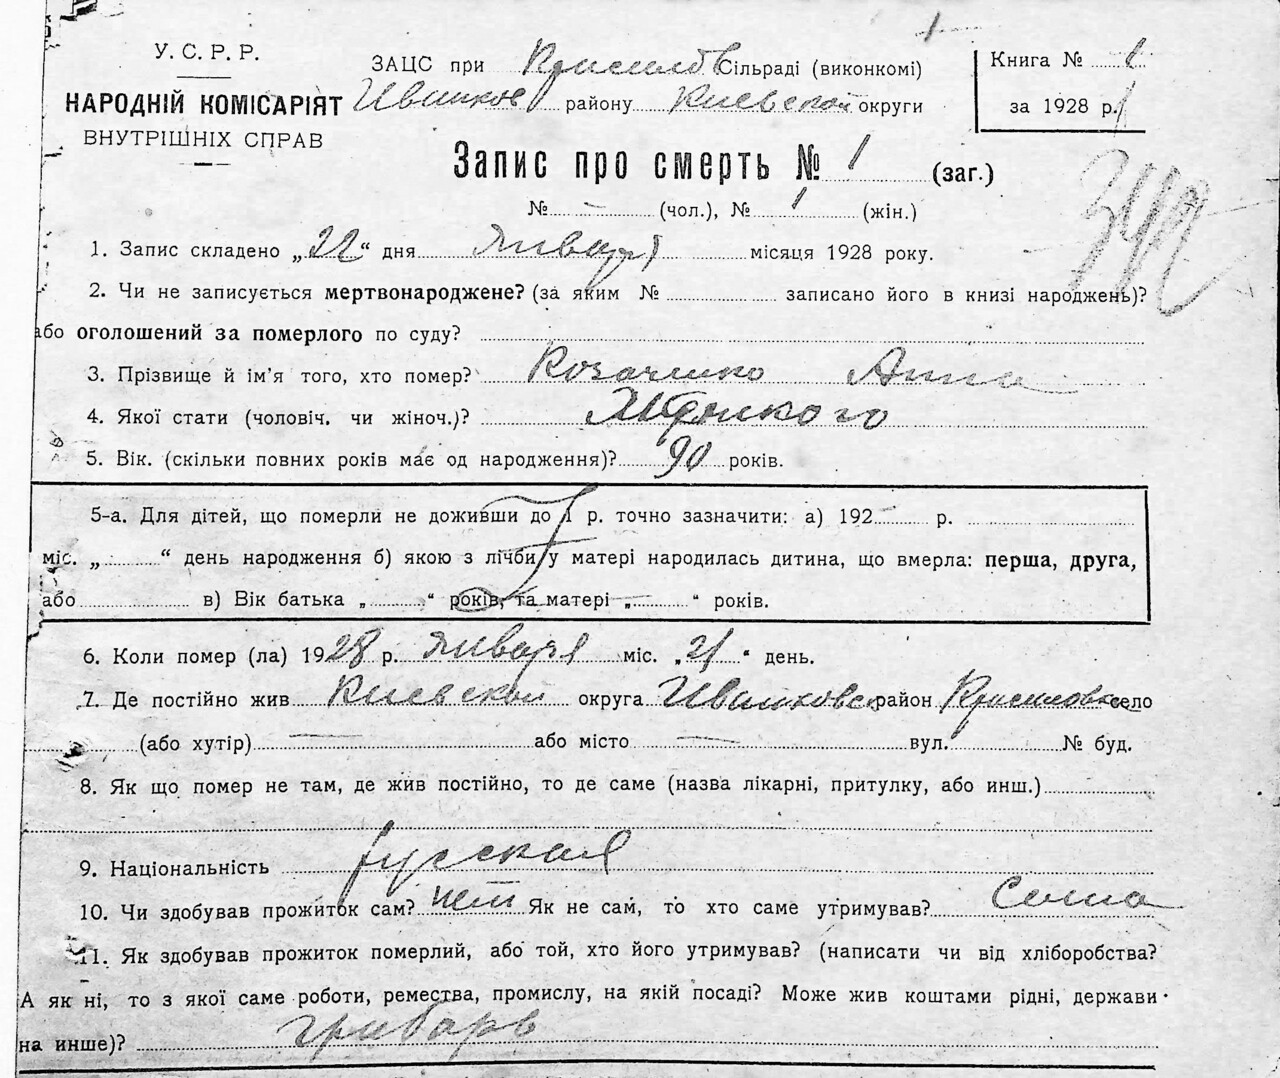 У. С. Р. Р.
НАРОДНІЙ КОМІСАРІЯТ
ВНУТРІШНІХ СПРАВ
ЗАЦС при Сільраді (виконкомі)
району Киевской округи
Книга № 1
за 1928 р.
Запис про смерть № 1 (заг.)
№ – (чол.), № 1 (жін.)
1. Запис складено „22“ дня Января місяця 1928 року.
2. Чи не записується мертвонароджене? (за яким № записано його в книзі народжень)?
або оголошений за померлого по суду?
3. Прізвище й ім'я того, хто помер? Козаченко Анна
4. Якої стати (чоловіч. чи жіноч.)?
5. Вік. (скільки повних років має од народження)? 90 років.
5-а. Для дітей, що померли не доживши до 1 р. точно зазначити: а) 192 р.
міс. „ “ день народження б) якою з лічби у матері народилась дитина, що вмерла: перша, друга,
або в) Вік батька „ “ років, та матері „ “ років.
6. Коли помер (ла) 1928 р. Января міс. „21“ день.
7. Де постійно жив Киевской округа район село
(або хутір) — або місто — вул. № буд.
8. Як що помер не там, де жив постійно, то де саме (назва лікарні, притулку, або инш.)
9. Національність русская
10. Чи здобував прожиток сам? нет Як не сам, то хто саме утримував?
11. Як здобував прожиток померлий, або той, хто його утримував? (написати чи від хліборобства?
А як ні, то з якої саме роботи, ремества, промислу, на якій посаді? Може жив коштами рідні, держави
на инше)?